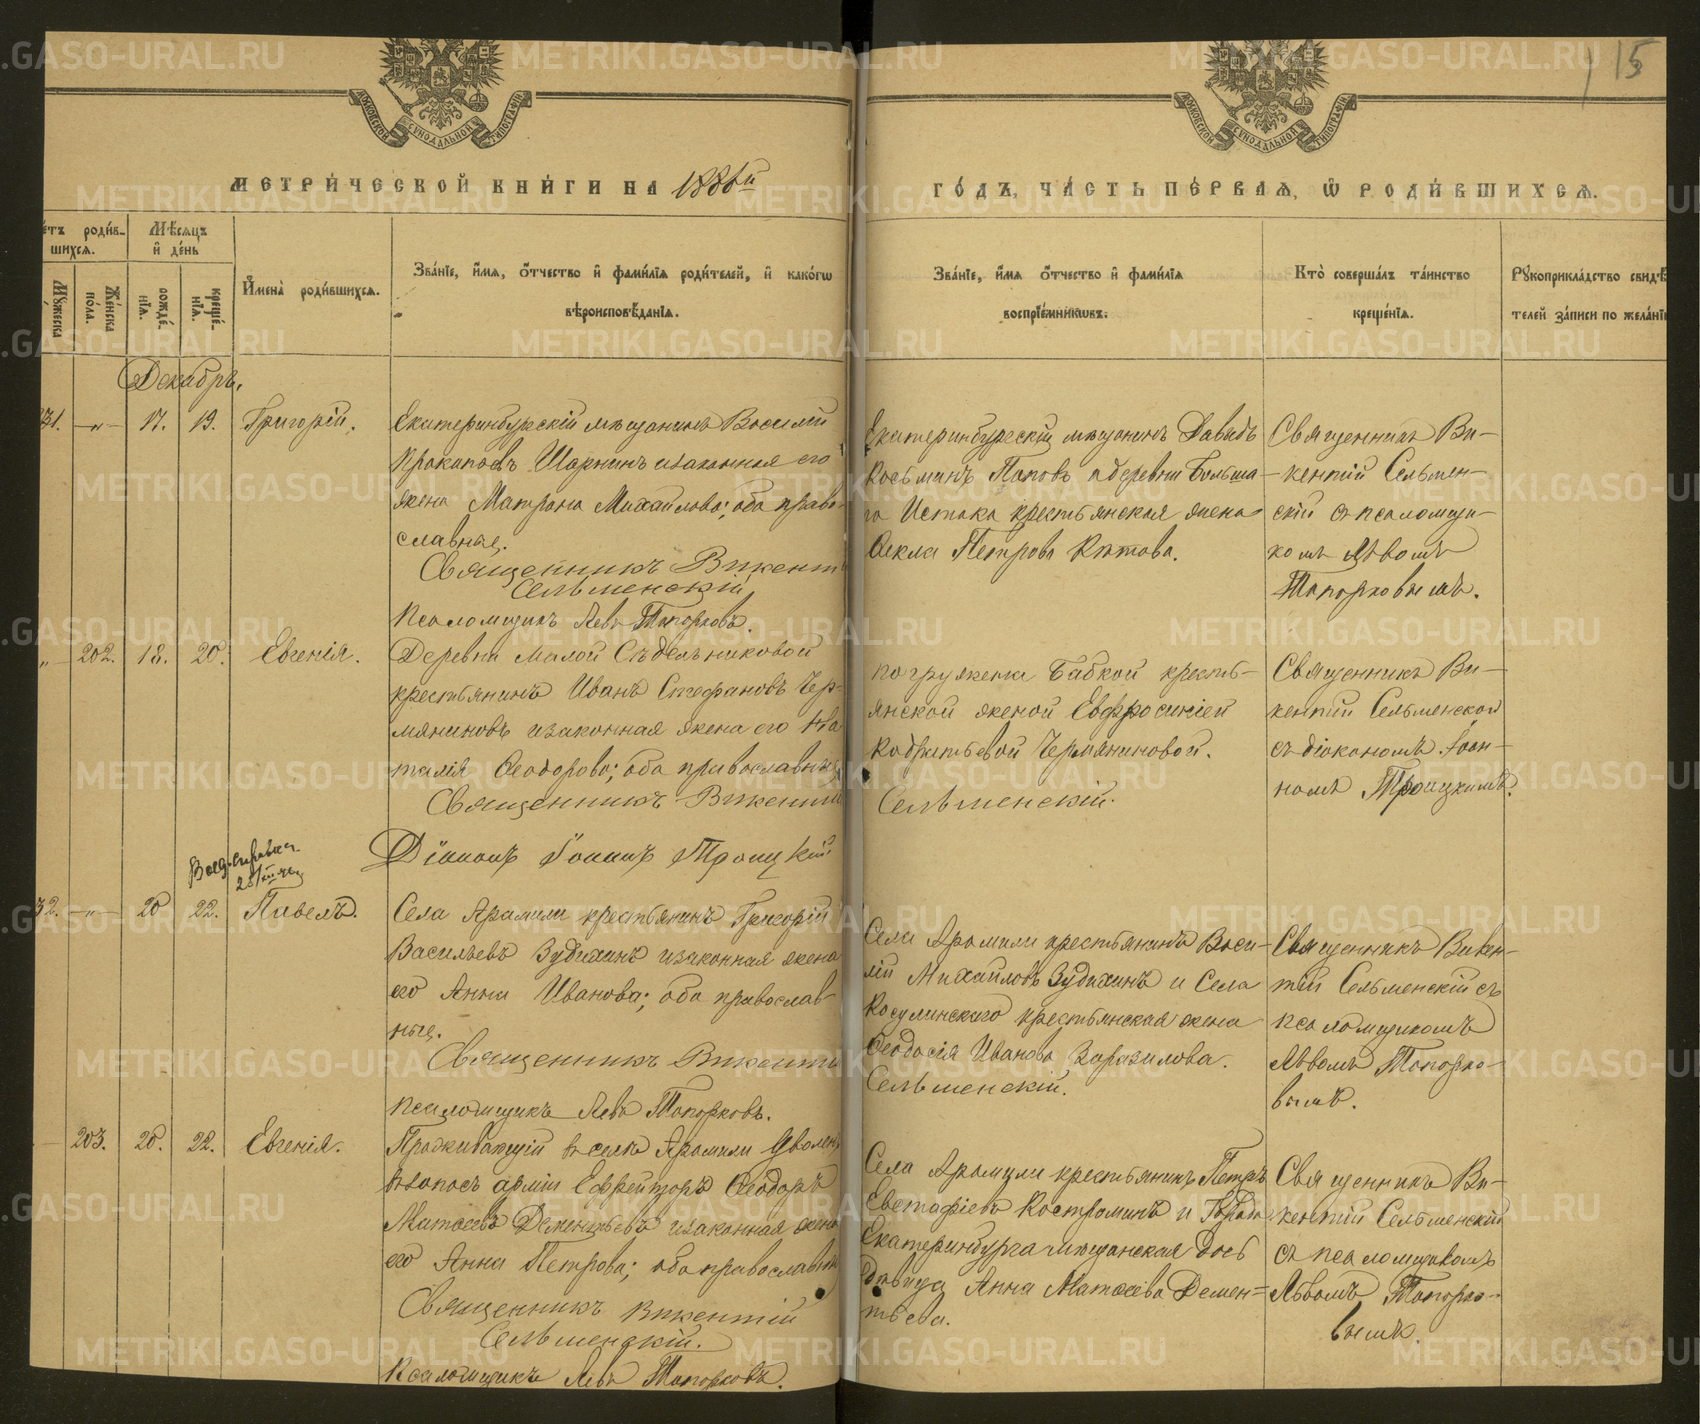 15
МОСКОВСКОЙ СУНОДАЛЬНОЙ ТИПОГРАФІИ
МОСКОВСКОЙ СУНОДАЛЬНОЙ ТИПОГРАФІИ
МЕТРИ́ЧЕСКОЙ КНИ́ГИ НА 1886й
ГО́ДЪ, ЧА́СТЬ ПЕ́РВАѦ, Ѡ҆ РОДИ́ВШИХСѦ.
етъ роди́вшихсѧ.
Мꙋ́жеска
Же́нска по́ла.
Мѣ́сѧцъ и҆ де́нь
рожде́нїѧ.
креще́нїѧ.
И҆мена̀ роди́вшихсѧ.
Зва́нїе, и҆́мѧ, ѻ҆́тчество и҆ фами́лїѧ роди́телей, и҆ како́гѡ
вѣроисповѣ́данїѧ.
Зва́нїе, и҆́мѧ ѻ҆́тчество и҆ фами́лїѧ
воспрїе́мникѡвъ.
Кто̀ соверша́лъ та́инство
креще́нїѧ.
Рꙋкоприкла́дство свидѣ
телей за́писи по жела́нї
Декабрь.
31. -„- 17. 19. Григорій.
Екатеринбургскій мѣщанинъ Василій
Прокопьевъ Шарнинъ изаконная его
жена Матрона Михаилова; оба право-
славные.
Священникъ Викент
Сельменскій
Псаломщикъ Левъ Топорковъ.
Екатеринбургскій мѣщанинъ Давидъ
Косьминъ Поповъ идеревни Больша-
го Истока крестьянская жена
Ѳекла Петрова Кѣтова.
Священникъ Ви-
кентій Сельмен-
скій съ псаломщи-
комъ Львомъ
Топорковымъ.
„ 202. 18. 20. Евгенія.
Деревни Малой Сѣдельниковой
крестьянинъ Иванъ Стефановъ Чер-
мяниновъ изаконная жена его На
талія Ѳеодорова; оба православные
Священникъ Викентій
Діаконъ Іоаннъ Троицкій
погружена бабкой кресть-
янской женой Евфросиніей
Кодратьевой Чермяниновой.
Сельменскій.
Священникъ Ви-
кентій Сельменской
съ діакономъ Іоан-
номъ Троицкимъ.
32. -„- 20 22. Павелъ.
Села Арамили крестьянинъ Григорій
Васильевъ Зудихинъ изаконная жена
его Анна Иванова; оба православ-
ные.
Священникъ Викентій
Псаломщикъ Левъ Топорковъ.
Села Арамили крестьянинъ Васи-
лій Михаиловъ Зудихинъ и Села
Косулинскаго крестьянская жена
Ѳеодосія Иванова Заразилова.
Сельменскій.
Священникъ Викен-
тій Сельменскій съ
псаломщикомъ
Львомъ Топорко-
вымъ.
203. 20. 22. Евгенія.
Проживающій въ селѣ Арамили Уволен
взапасъ арміи Ефрейторъ Ѳеодоръ
Матѳеевъ Дементьевъ изаконная жена
его Анна Петрова; оба православные
Священникъ Викентій
Сельменскій.
Псаломщикъ Левъ Топорковъ.
Села Арамили крестьянинъ Петръ
Евстафіевъ Костроминъ и Города
Екатеринбурга мѣщанская дочь
дѣвица Анна Матѳеева Демен=
тьева.
Священникъ Ви-
кентій Сельменскій
съ псаломщикомъ
Львомъ Топорко-
вымъ.
METRIKI.GASO-URAL.RU